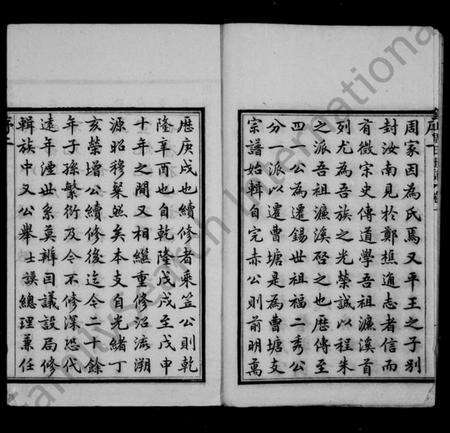 周家因為氏焉又平王之子別
封汝南見於鄭樵通志者信而
有徵宋史傳道學吾祖濂溪首
列尤為吾族之光榮誠以程朱
之派吾祖濂溪啓之也歷傳至
四一公為遷錫世祖福二秀公
分一派以遷曹塘是為曹塘支
宗譜始輯自完赤公則前明萬
歷庚戌也續修者乘笠公則乾
隆辛酉也自乾隆戊戌至戊申
十年之間又相繼重修沿流溯
源昭穆粲然矣本支自光緒丁
亥榮增公續修後迄今二十餘
年子孫繁衍及今不修深恐代
遠年湮世系莫辨因議設局修
輯族中又公舉士謨總理兼任
序二
FamilySearch International